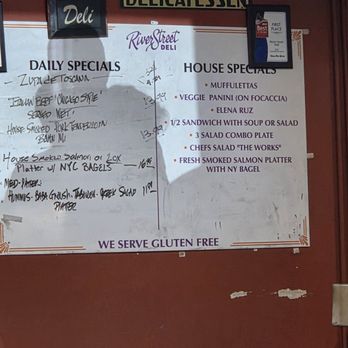 Deli
DELICATESSEN
FIRST
PLACE
RiverStreet
DELI
DAILY SPECIALS
ZUPPA DE TOSCANA
ITALIAN BEEF "CHICAGO STYLE"
SERVED "WET"
HOUSE SMOKED PORK TENDERLOIN
BAHN MI
House Smoked Salmon or Lox
Platter w/ NYC BAGELS 16.99
MED-PLATER
HUMMUS - BABA GNUSH - TABOULEH - GREEK SALAD
PLATER
HOUSE SPECIALS
• MUFFULETTAS
• VEGGIE PANINI (ON FOCACCIA)
• ELENA RUZ
• 1/2 SANDWICH WITH SOUP OR SALAD
• 3 SALAD COMBO PLATE
• CHEFS SALAD "THE WORKS"
• FRESH SMOKED SALMON PLATTER
WITH NY BAGEL
WE SERVE GLUTEN FREE